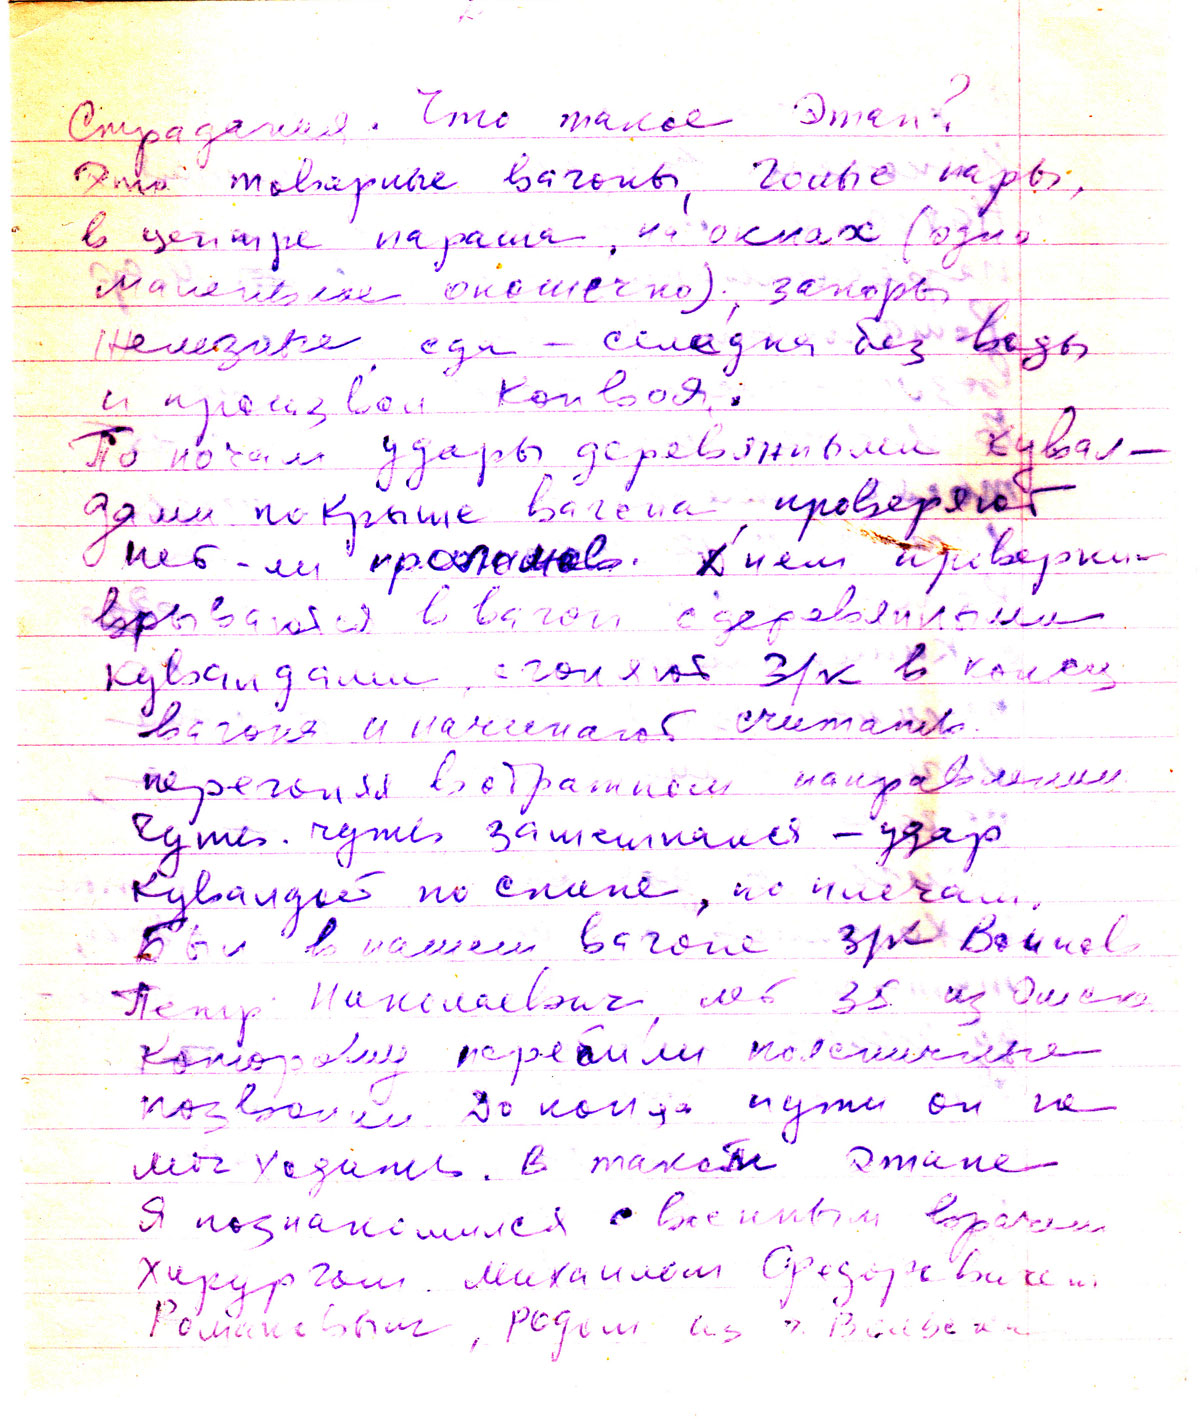 Страдания. Что такое Этап?
Это товарные вагоны, голые нары,
в центре параша, на окнах (одно
маленькое окошечко), запоры
железные, еда – селедка без воды
и произвол конвоя.
По ночам удары деревянными кувал-
дами по крыше вагона, проверяют
нет-ли проломов. Днем проверки
врываются в вагон с деревянными
кувалдами, сгоняют з/к в конец
вагона и начинают считать
перегоняя в обратном направлении
Чуть-чуть замешкался – удар
кувалдой по спине, по плечам.
Был в нашем вагоне з/к Воинов
Петр Николаевич, лет 35 из Омска
которому перебили поясничные
позвонки до конца пути он не
мог ходить. В таком этапе
Я познакомился с военным врачом
хирургом Михаилом Федоровичем
Романовым, родом из г. Вольска